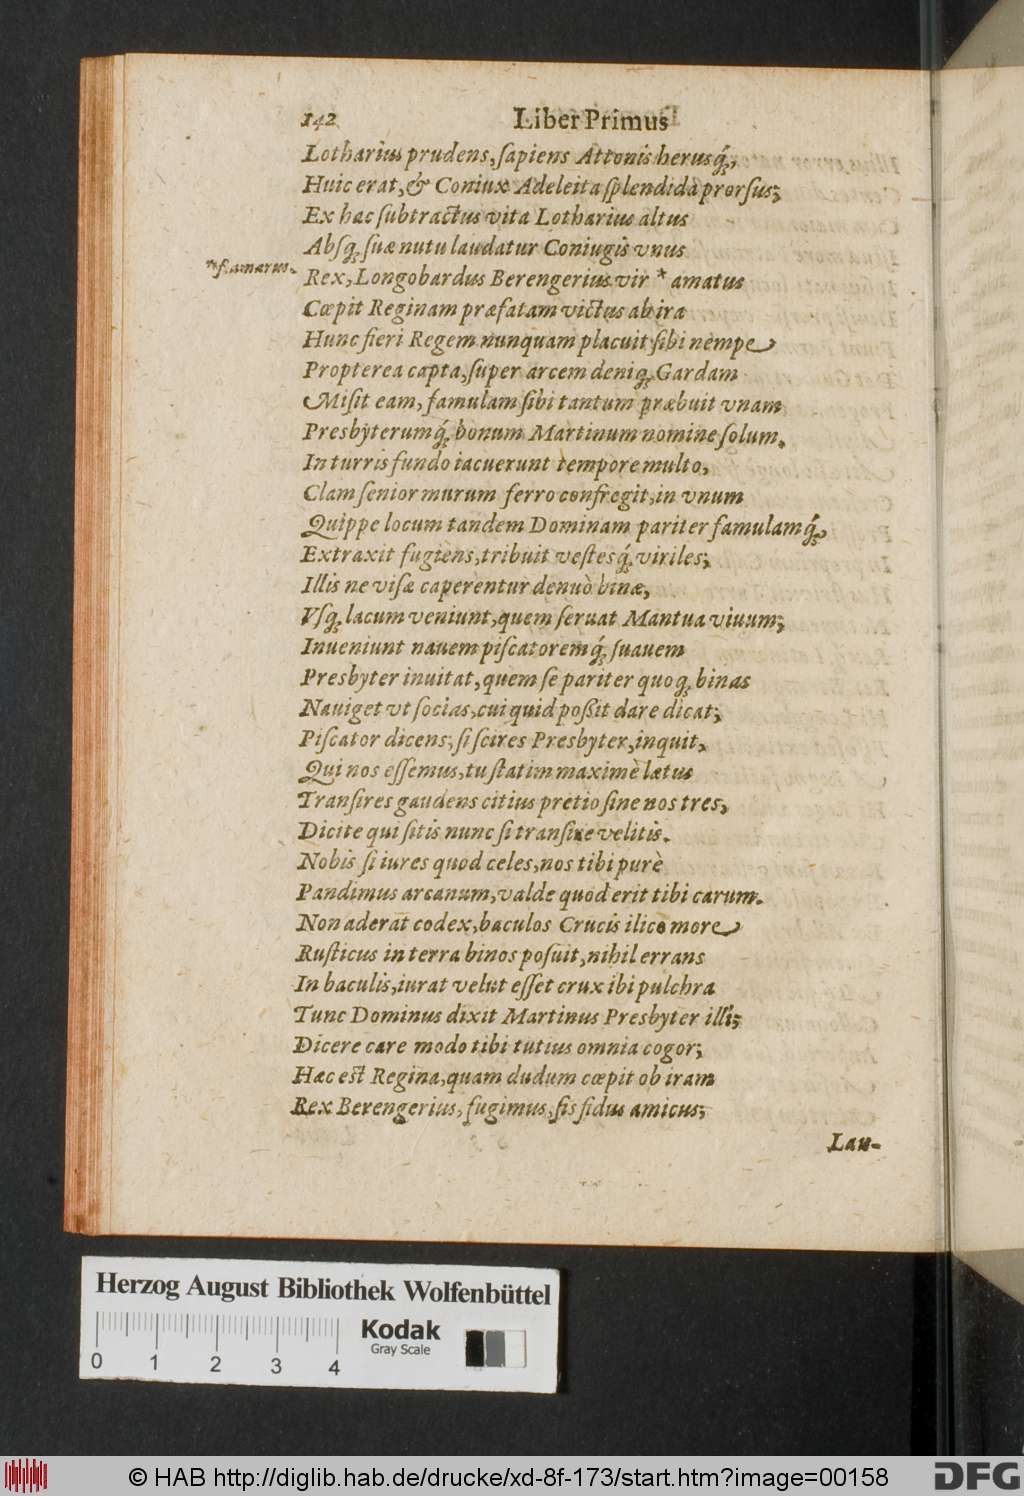 142 Liber Primus
Lotharius prudens, ſapiens Attonis herusq́;,
Huic erat, & Coniux Adeleita ſplendida prorſus;
Ex hac ſubtractus vita Lotharius altus
Abſq; ſuæ nutu laudatur Coniugis vnus
*f. amarus.
Rex, Longobardus Berengerius vir * amatus
Cœpit Reginam præfatam victus ab ira
Hunc fieri Regem nunquam placuit ſibi nempe
Propterea capta, ſuper arcem deniq; Gardam
Miſit eam, famulam ſibi tantum præbuit vnam
Presbyterumq́; bonum Martinum nomine ſolum.
In turris fundo iacuerunt tempore multo,
Clam ſenior murum ferro confregit, in vnum
Quippe locum tandem Dominam pariter famulamq́;
Extraxit fugiens, tribuit veſtesq́; viriles;
Illis ne viſæ caperentur denuò binæ,
Vſq; lacum veniunt, quem ſeruat Mantua viuum;
Inueniunt nauem piſcatoremq́; ſuauem
Presbyter inuitat, quem ſe pariter quoq; binas
Nauiget vt ſocias, cui quid poßit dare dicat;
Piſcator dicens; ſi ſcires Presbyter, inquit,
Qui nos eſſemus, tu ſtatim maximè lætus
Tranſires gaudens citius pretio ſine nos tres,
Dicite qui ſitis nunc ſi tranſire velitis.
Nobis ſi iures quod celes, nos tibi purè
Pandimus arcanum, valde quod erit tibi carum.
Non aderat codex, baculos Crucis ilico more
Ruſticus in terra binos poſuit, nihil errans
In baculis, iurat velut eſſet crux ibi pulchra
Tunc Dominus dixit Martinus Presbyter illi;
Dicere care modo tibi tutius omnia cogor;
Hæc eſt Regina, quam dudum cœpit ob iram
Rex Berengerius, fugimus, ſis fidus amicus;
Lau-
Herzog August Bibliothek Wolfenbüttel
0 1 2 3 4
Kodak
Gray Scale
© HAB http://diglib.hab.de/drucke/xd-8f-173/start.htm?image=00158
DFG